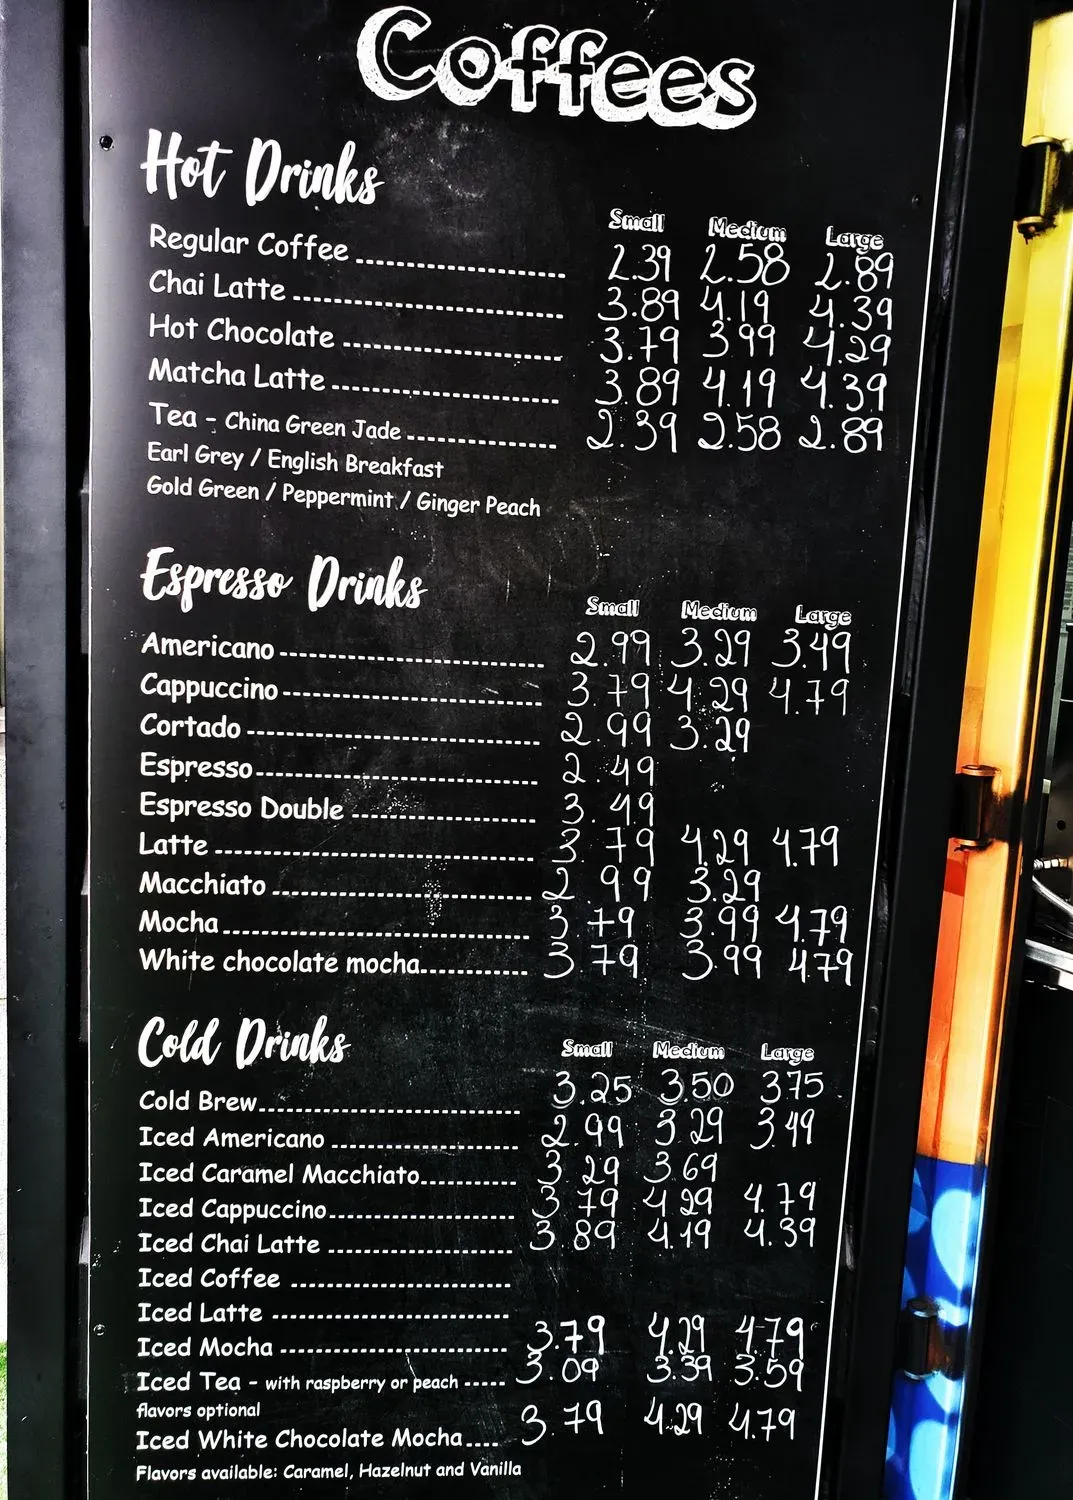 Coffees
Hot Drinks
Small Medium Large
Regular Coffee 2.39 2.58 2.89
Chai Latte 3.89 4.19 4.39
Hot Chocolate 3.79 3.99 4.29
Matcha Latte 3.89 4.19 4.39
Tea - China Green Jade 2.39 2.58 2.89
Earl Grey / English Breakfast
Gold Green / Peppermint / Ginger Peach
Espresso Drinks
Small Medium Large
Americano 2.99 3.29 3.49
Cappuccino 3.79 4.29 4.79
Cortado 2.99 3.29
Espresso 2.49
Espresso Double 3.49
Latte 3.79 4.29 4.79
Macchiato 2.99 3.29
Mocha 3.79 3.99 4.79
White chocolate mocha 3.79 3.99 4.79
Cold Drinks
Small Medium Large
Cold Brew 3.25 3.50 3.75
Iced Americano 2.99 3.29 3.49
Iced Caramel Macchiato 3.29 3.69
Iced Cappuccino 3.79 4.29 4.79
Iced Chai Latte 3.89 4.19 4.39
Iced Coffee
Iced Latte
Iced Mocha 3.79 4.29 4.79
Iced Tea - with raspberry or peach 3.09 3.39 3.59
flavors optional
Iced White Chocolate Mocha 3.79 4.29 4.79
Flavors available: Caramel, Hazelnut and Vanilla